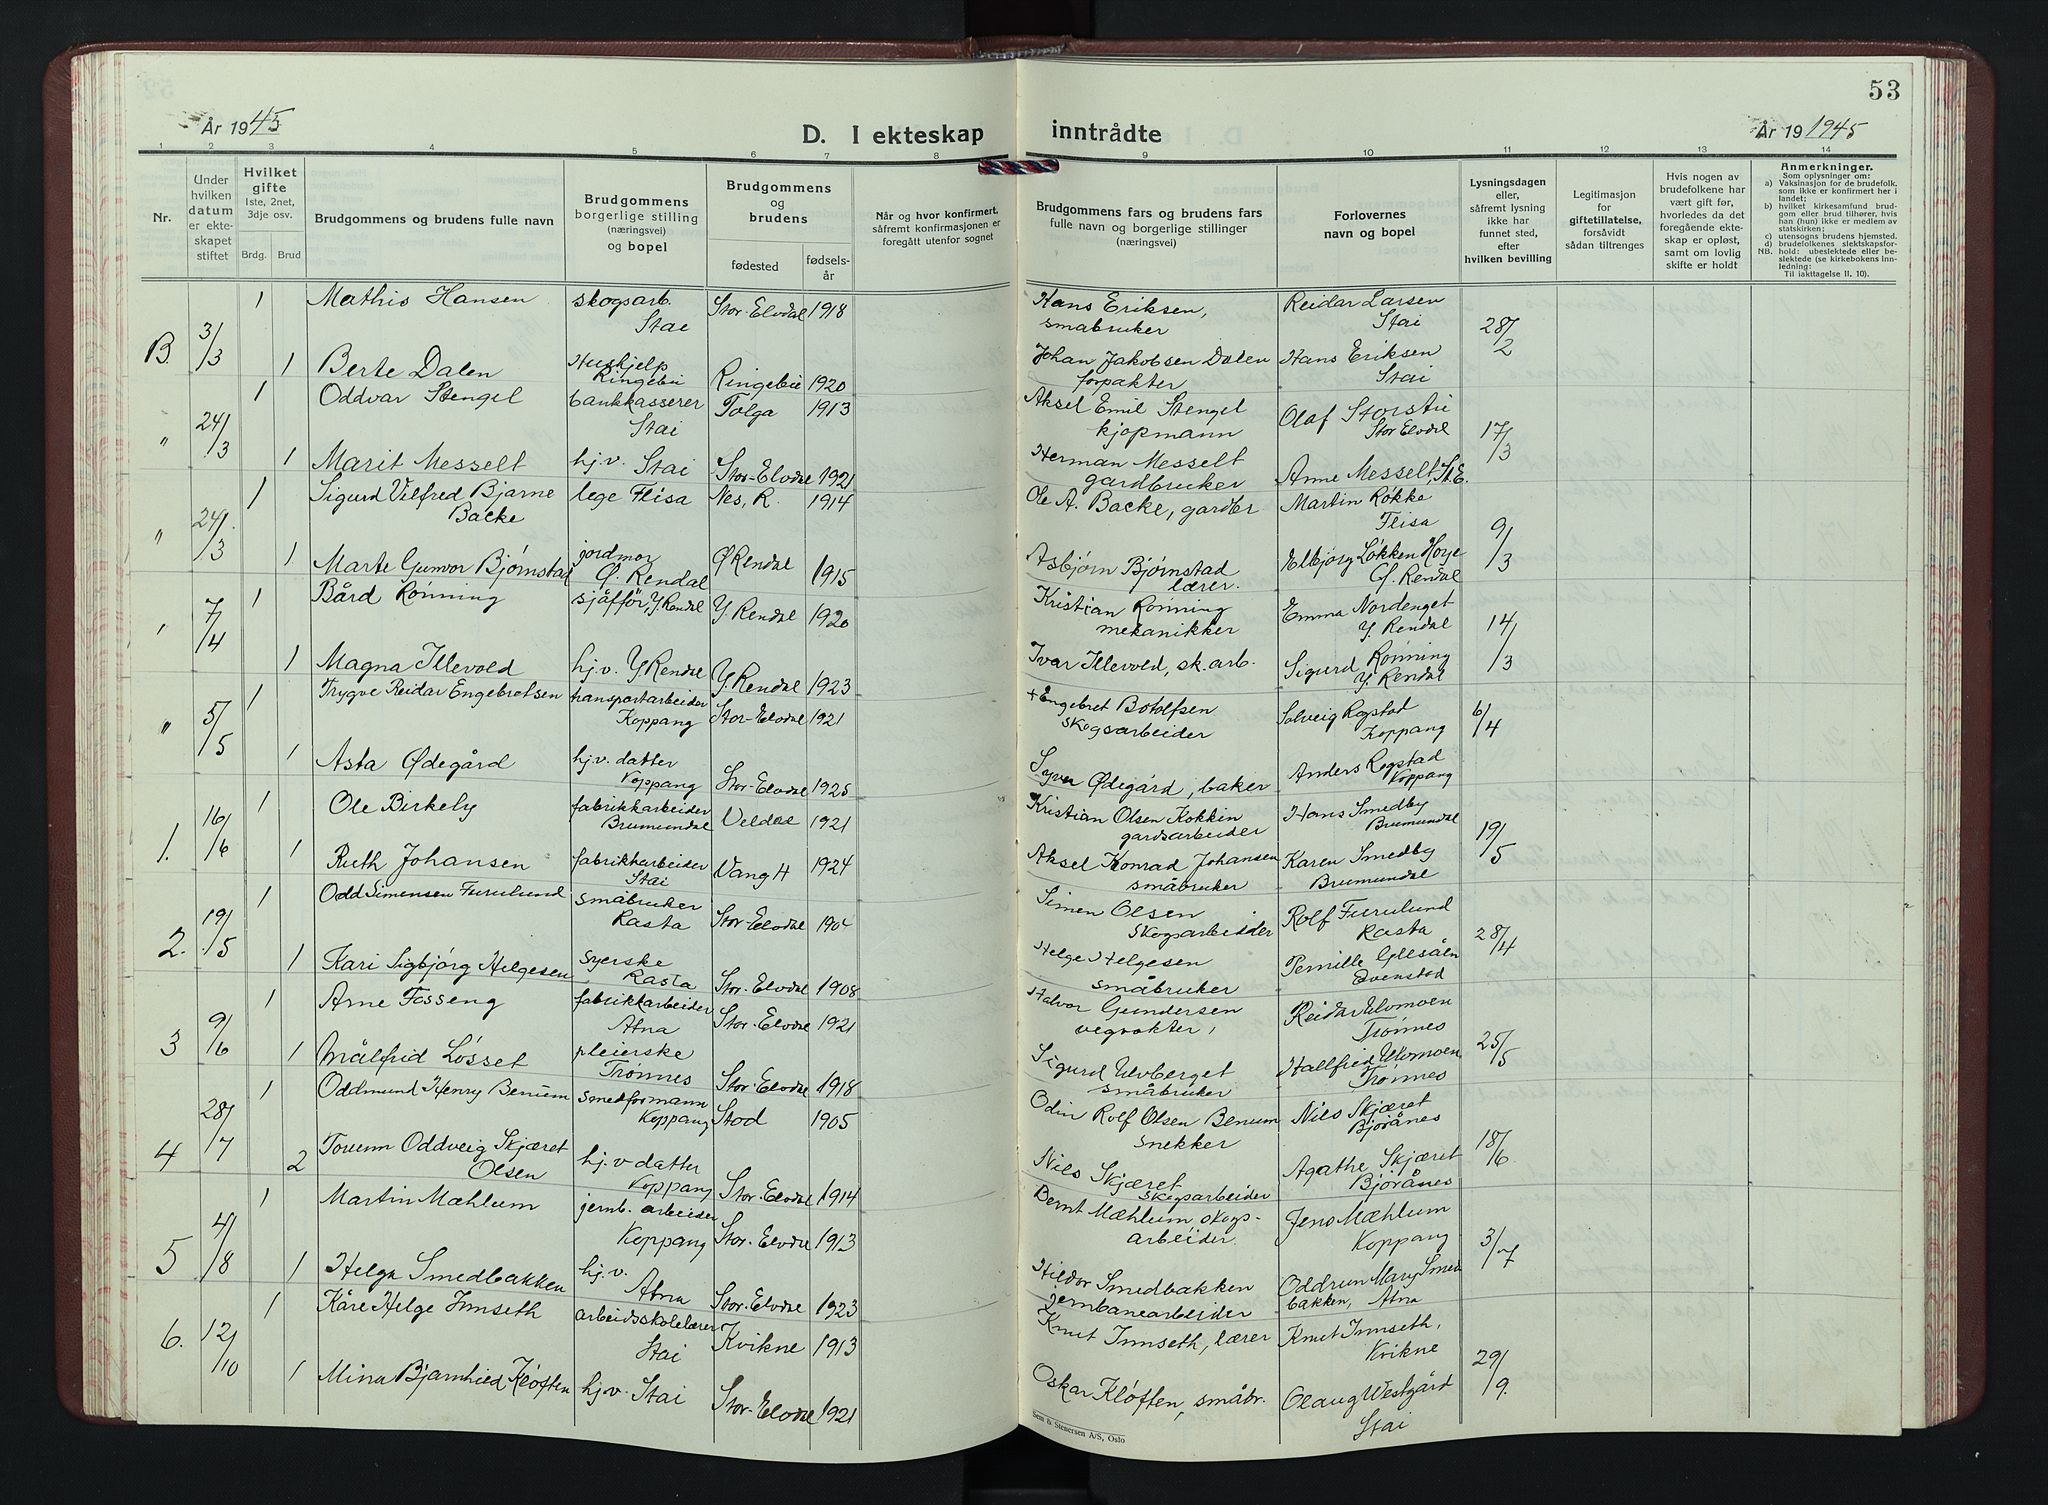 53
År 1945
D. I ekteskap inntrådte
År 19 1945
1 2 3 4 5 6 7 8 9 10 11 12 13 14
Nr.
Under hvilken datum er ekteskapet stiftet
Hvilket gifte
1ste, 2net, 3dje osv.
Brdg. Brud
Brudgommens og brudens fulle navn
Brudgommens borgerlige stilling (næringsvei) og bopel
Brudgommens og brudens
fødested
fødselsår
Når og hvor konfirmert, såfremt konfirmasjonen er foregått utenfor sognet
Brudgommens fars og brudens fars fulle navn og borgerlige stillinger (næringsvei)
Forlovernes navn og bopel
Lysningsdagen eller, såfremt lysning ikke har funnet sted, efter hvilken bevilling
Legitimasjon for giftetillatelse, forsåvidt sådan tiltrenges
Hvis nogen av brudefolkene har vært gift før, hvorledes da det foregående ekteskap er opløst, samt om lovlig skifte er holdt
Anmerkninger.
Som oplysninger om:
a) Vaksinasjon for de brudefolk, som ikke er konfirmert her i landet;
b) hvilket kirkesamfund brudgom eller brud tilhører, hvis han (hun) ikke er medlem av statskirken;
c) utensogns brudens hjemsted.
d) brudefolkenes slektskapsforhold: ubeslektede eller beslektede (se kirkebokens innledning:
NB. Til iakttagelse II. 10).
B. 3/3 1 Mathis Hansen skogsarb. Stai Stor-Elvdal 1918 Hans Eriksen, småbruker Reidar Larsen Stai 28/2
1 Berte Dalen Hushjelp Ringebu Ringebu 1920 Johan Jakobsen Dalen forpakter Hans Eriksen Stai
" 24/3 1 Oddvar Stengel bankkasserer Stai Tolga 1913 Aksel Emil Stengel kjøpmann Olaf Storstu Stor Elvdal 17/3
1 Marit Messelt hj.v. Stai Stor-Elvdal 1921 Herman Messelt gardbruker Anne Messelt, St. E.
" 24/3 1 Sigurd Vilfred Bjarne Backe lege Flisa Nes, R. 1914 Ole A. Backe, gardbr Martin Røkke Flisa 9/3
1 Marte Gunvor Bjørnstad jordmor Ø. Rendal Ø Rendal 1915 Asbjørn Bjørnstad lærer. Elbjørg Løkken Høye Ø. Rendal
" 7/4 1 Bård Rønning sjåffør, Y. Rendal Y. Rendal 1920 Kristian Rønning mekanikker Emma Nordenget Y. Rendal 14/3
1 Magna Illevold hj.v. Y. Rendal Y. Rendal 1923 Ivar Illevold, sk. arb. Sigurd Rønning Y. Rendal
" 5/5 1 Trygve Reidar Engebretsen transportarbeider Koppang Stor-Elvdal 1921 + Engebret Botolfsen skogsarbeider Solveig Rogstad Koppang 6/4
1 Asta Ødegård hj.v. datter Koppang Stor-Elvdal 1925 Syver Ødegård, baker Anders Rogstad Koppang
1. 16/6 1 Ole Birkely fabrikkarbeider Brumundal Veldre 1921 Kristian Olsen Kokkin gardsarbeider Hans Smedby Brumundal 19/5
1 Ruth Johansen fabrikkarbeider Stai Vang H 1924 Aksel Konrad Johansen småbruker Karen Smedby Brumundal
2. 19/5 1 Odd Simensen Furulund småbruker Rasta Stor-Elvdal 1904 Simen Olsen skogsarbeider Rolf Furulund Rasta 28/4
1 Kari Sigbjørg Helgesen syerske Rasta Stor-Elvdal 1908 Helge Helgesen småbruker Pernille Evenstad
3 9/6 1 Arne Fosseng fabrikkarbeider Atna Stor-Elvdal 1921 Halvor Gundersen vegvokter, Reidar Ulvmoen Trønnes 25/5
1 Målfrid Løsset pleierske Trønnes Stor-Elvdal 1918 Sigurd Ulvberget småbruker Hallfrid Ulvmoen Trønnes
4 28/7 1 Oddmund Henry Benum smedformann Koppang Stod 1905 Odin Rolf Olsen Benum snekker Nils Skjæret Bjørånes 18/6
2 Torunn Oddveig Skjæret Olsen hj.v datter Koppang Stor-Elvdal 1914 Nils Skjæret skogsarbeider Agathe Skjæret Bjørånes
5 4/8 1 Martin Mæhlum jernb. arbeider Koppang Stor-Elvdal 1913 Bernt Mæhlum skogsarbeider. Jens Mæhlum Koppang 3/7
1 Helga Smedbakken hj.v. Atna Stor-Elvdal 1923 Hildor Smedbakken jernbanearbeider Oddrun Mary Smedbakken, Atna
6. 12/10 1 Kåre Helge Innseth arbeidsskolelærer Stai Kvikne 1913 Knut Innseth, lærer Knut Innseth, Kvikne 29/9.
1 Mina Bjarnhild Kløften hj.v. Stai Stor-Elvdal 1921 Oskar Kløften, småbr. Olaug Westgård Stai
Sem & Stenersen A/S, Oslo